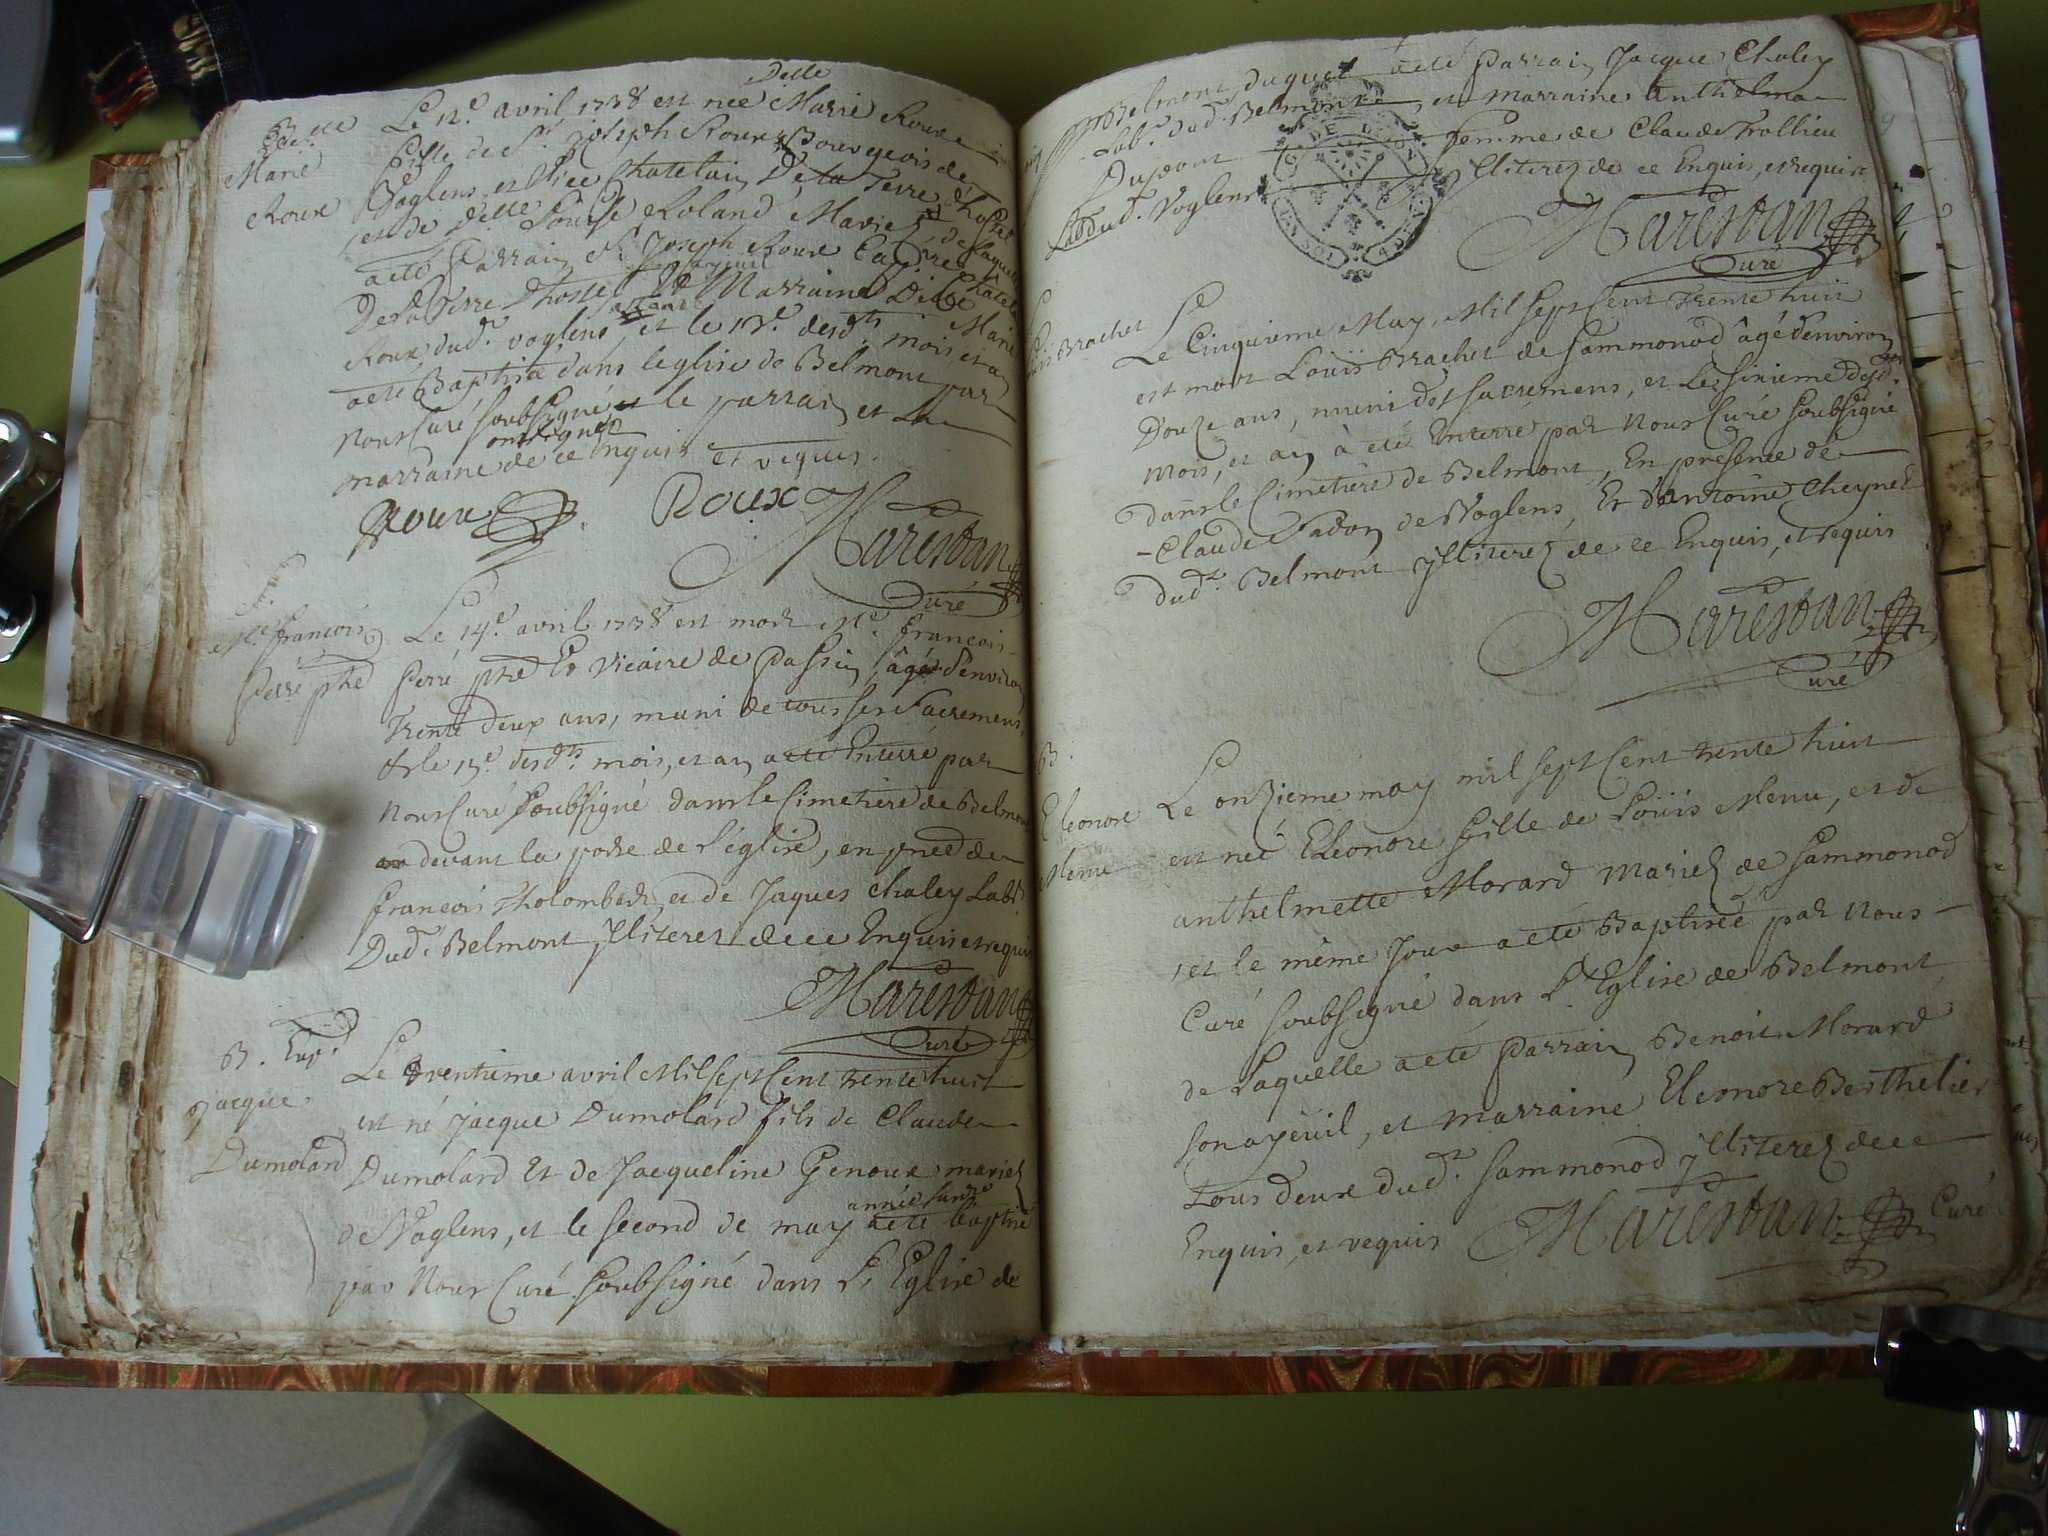 B. de
Delle
Marie
Roux
Le 12e. avril 1738 est née Marie Roux
fille de Sr. Joseph Roux Bourgeois de
Voglens, et Vice Chatelain De la Terre d'hostel
et de Delle Louise Roland Mariez, de Laquelle
a eté Parrain Sr. Joseph Roux
De la Terre d'hostel et Marraine Delle Marie
Roux dud. voglens, et le 13e. desdts. mois, et an
a eté Baptisé dans leglise de Belmont par
Nous Curé soubsigné et le parrain et La
ont signé
marraine de ce Enquis et requis.
Roux Roux Marestan
Curé
Mre. françois
Perré ptre
Le 14e. avril 1738 est mort Mre. françois
Perré ptre Et Vicaire de Passin, âgé d'environ
Trente deux ans, muni de tous ses Sacremens,
& le 15e. desdts. mois, et an a eté Enterré par
Nous Curé Soubsigné dans le Cimetiere de Belmont
devant la porte de l'église, en pnce de
françois Tholombert, et de Jaques Chaley Labrs.
Dud. Belmont, Illiterez de ce Enquis et requis
Marestan
Curé
B.
Jacque
Dumolard
Le trentieme avril Mil sept Cent trente huit
est né Jacque Dumolard fils de Claude
Dumolard Et de Jacqueline Genoux mariez
année susde
de Voglens, et le second de may a eté baptisé
par Nous Curé soubsigné dans L'Eglise de
Belmont, duquel a eté Parrain Jacque Chaley
Labr. dud. Belmont, et marraine Anthelma
Dupont femme de Claude Trollieu
Lab dud. Voglens Illiterez de ce Enquis, et requis
Marestan
Curé
Louis Brachet
Le
Le Cinquieme May, Mil sept Cent trente huit
est mort Louïs Brachet de Sammonod âgé d'environ
Douze ans, muni des sacremens, et Le sixieme desd.
mois, et an à eté Enterré par Nous Curé soubsigné
dans le Cimetiere de Belmont, En presence de
Claude Vadon de Voglens, Et d'antoine Cheynet
dud. Belmont Illiterez de ce Enquis, et requis
Marestan
Curé
B.
Eleonore
Menu
Le onzieme may mil sept Cent trente huit
est neé Eleonore fille de Louïs Menu, et de
anthelmette Morard Mariez de Sammonod
et le même Jour a eté Baptiseé par Nous
Curé soubsigné dans L'Eglise de Belmont
de Laquelle a eté Parrain Benoit Morard
son ayeuil, et marraine Eleonore Berthelier
tous deux dud. Sammonod Illiterez de ce
Enquis, et requis Marestan Curé